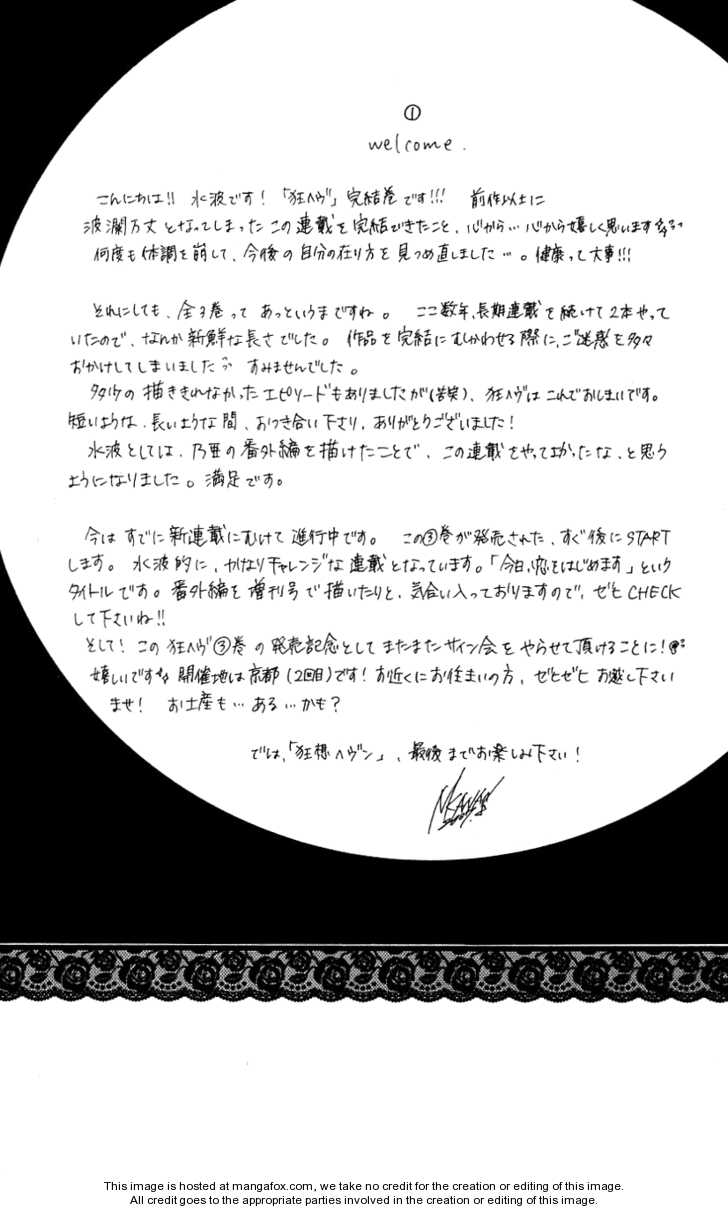 ①
welcome.
こんにちは!! 水波です! 「狂ヘヴ」完結巻です!!! 前作以上に
波瀾万丈となってしまったこの連載を完結できたこと、心から…心から嬉しく思います
何度も体調を崩して、今後の自分の在り方を見つめ直しました…。健康って大事!!!
それにしても、全3巻って あっというまですね。 ここ数年、長期連載を続けて2本やって
いたので、なんか新鮮な長さでした。 作品を完結にむかわせる際に、ご迷惑を多々
おかけしてしまいました すみませんでした。
多々の描ききれなかったエピソードもありましたが(苦笑)、狂ヘヴはこれでおしまいです。
短いような、長いような間、おつき合い下さり、ありがとうございました!
水波としては、乃亜の番外編を描けたことで、この連載をやってよかったな、と思う
ようになりました。満足です。
今はすでに新連載にむけて進行中です。 この③巻が発売された、すぐ後にSTART
します。 水波的に、かなりチャレンジな連載となっています。「今日、恋をはじめます」という
タイトルです。番外編を増刊号で描いたりと、気合い入っておりますので、ぜひCHECK
して下さいね!!
そして! この狂ヘヴ③巻の発売記念としてまたまたサイン会をやらせて頂けることに!
嬉しいです 開催地は京都(2回目)です! お近くにお住まいの方、ぜひぜひお越し下さい
ませ! お土産も…ある…かも?
では、「狂想ヘヴン」、最後までお楽しみ下さい!
This image is hosted at mangafox.com, we take no credit for the creation or editing of this image.
All credit goes to the appropriate parties involved in the creation or editing of this image.